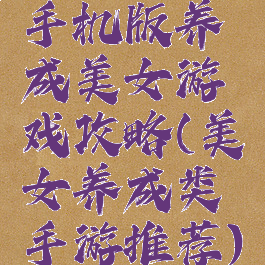 手机版养
成美女游
戏攻略(美
女养成类
手游推荐)